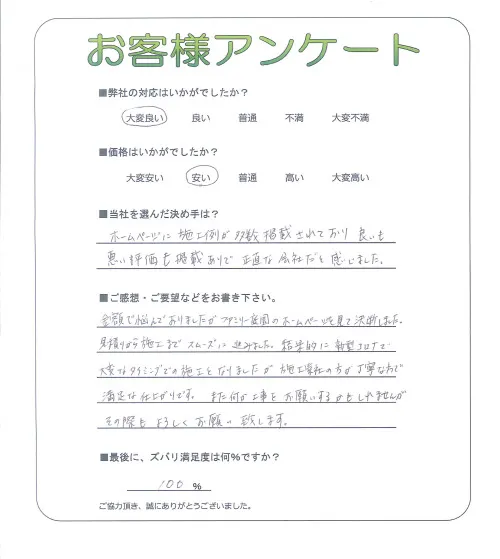 お客様アンケート
■弊社の対応はいかがでしたか？
大変良い 良い 普通 不満 大変不満
■価格はいかがでしたか？
大変安い 安い 普通 高い 大変高い
■当社を選んだ決め手は？
ホームページに施工例が多数掲載されており良いも
悪い評価も掲載ありで正直な会社だと感じました。
■ご感想・ご要望などをお書き下さい。
金額で悩んでおりましたがファミリー庭園のホームページを見て決断しました。
見積りから施工までスムーズに進みました。結果的に新型コロナで
大変なタイミングでの施工となりましたが施工業社の方が丁寧なわで
満足な仕上がりです。また何か工事をお願いするかもしれませんが
その際もよろしくお願い致します。
■最後に、ズバリ満足度は何％ですか？
100 %
ご協力頂き、誠にありがとうございました。